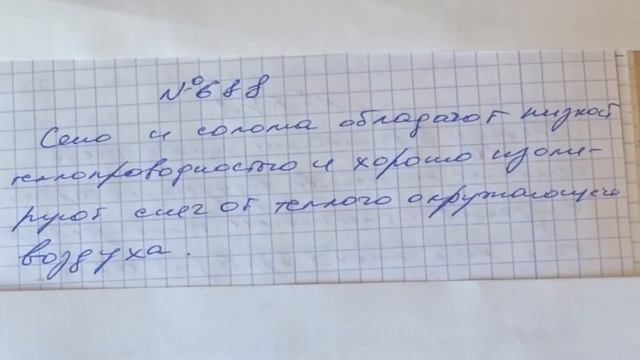 №688
Сено и солома обладают низкой
теплопроводностью и хорошо изоли-
руют снег от теплого окружающего
воздуха.